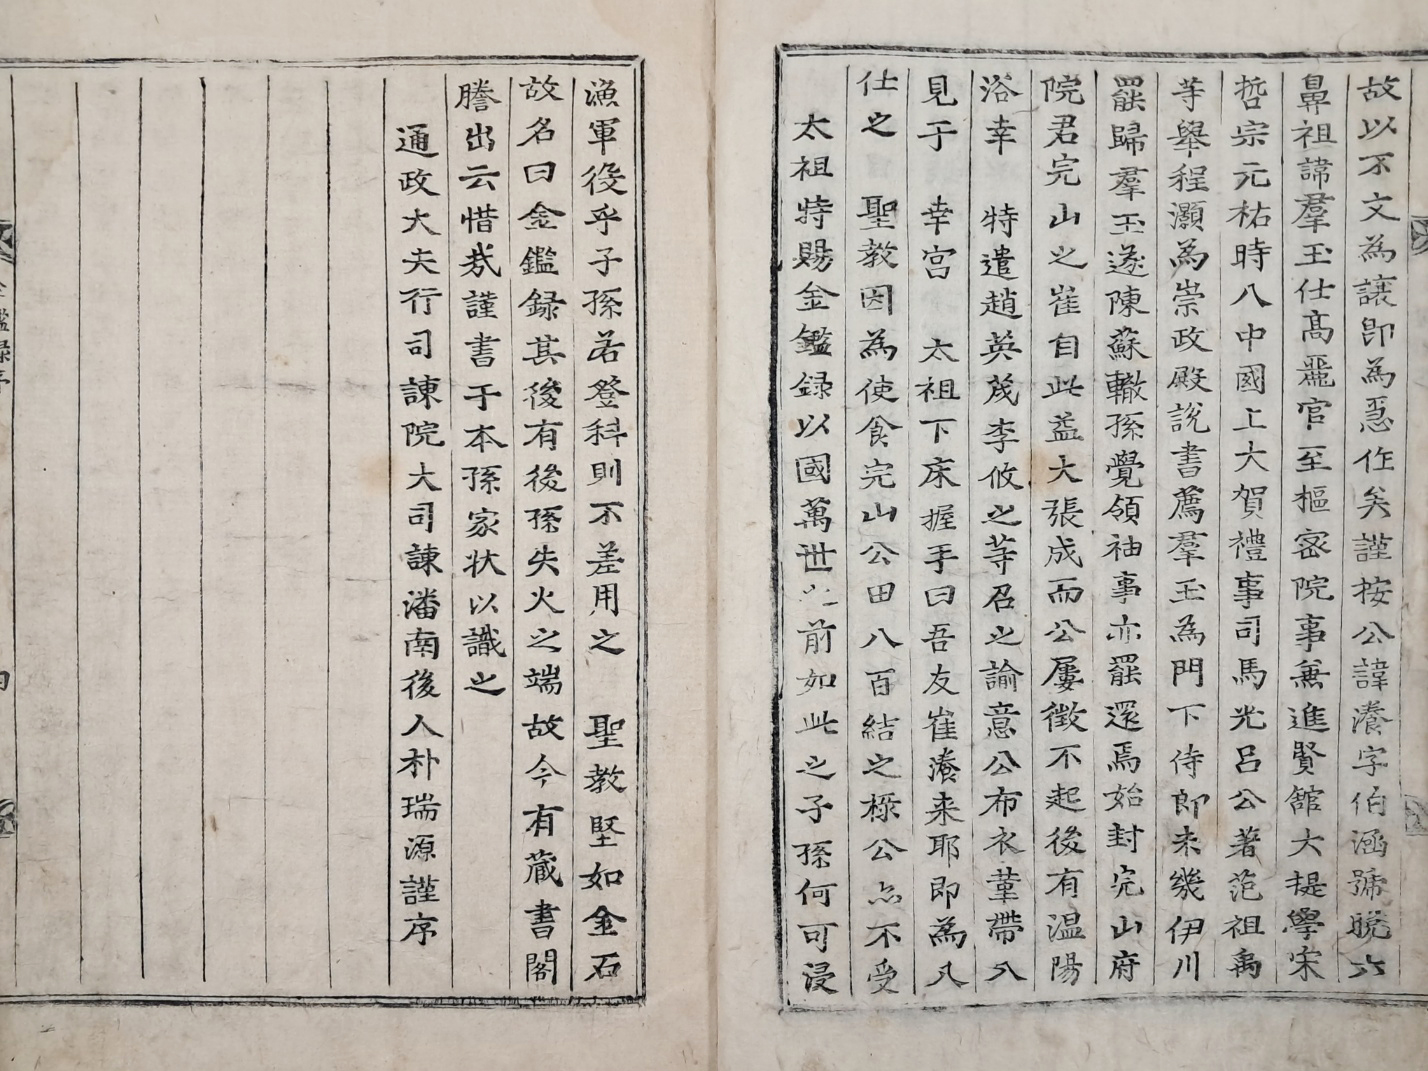 故以不文爲讓卽爲㤅作矣謹按公諱瀁字伯涵號晩六
鼻祖諱羣玉仕高麗官至樞密院事兼進賢舘大提學宋
哲宗元祐時入中國上大賀禮事司馬光呂公著范祖禹
等擧程灝爲崇政殿說書薦羣玉爲門下侍郎未幾伊川
罷歸羣玉遂陳蘇轍孫覺領袖事亦罷還焉始封完山府
院君完山之崔自此益大張成而公屢徵不起後有溫陽
浴幸 特遣趙英茂李攸之等召之諭意公布衣葦帶入
見于 幸宮 太祖下床握手曰吾友崔瀁来耶卽爲入
仕之 聖教因爲使食完山公田八百結之祿公亦不受
太祖特賜金鑑録以國萬世之前如此之子孫何可浸
漁軍役乎子孫若登科則不差用之 聖教堅如金石
故名曰金鑑録其後有後孫失火之端故今有蔵書閣
謄出云惜㢤謹書于本孫家状以識之
通政大夫行司諫院大司諫潘南後人朴瑞源謹序
金鑑録序
四